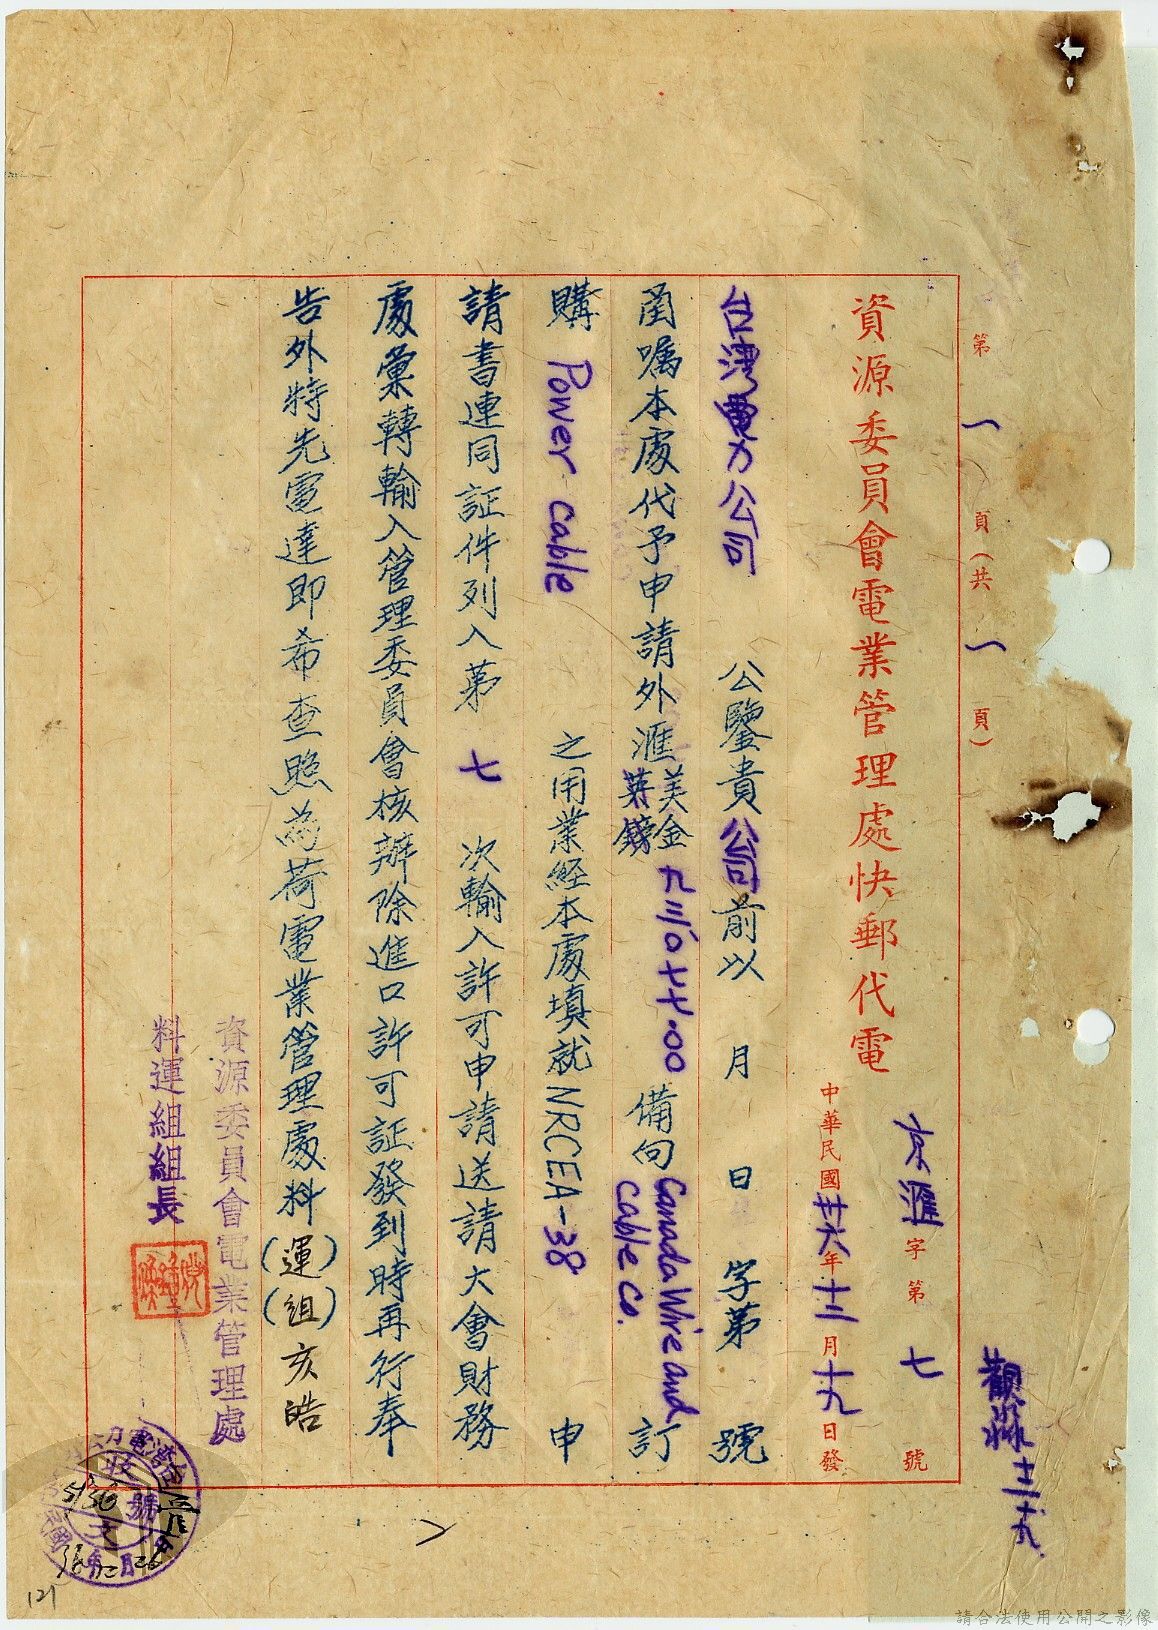 第一頁(共一頁)
資源委員會電業管理處快郵代電
京滙字第七號
中華民國卅六年十二月十九日發
台灣電力公司 公鑒貴公司前以 月 日 字第 號
函嘱本處代予申請外滙美金英鎊九三〇七七.00備向Canada Wire and Cable Co.訂
購Power Cable之用業經本處填就NRCEA-38申
請書連同証件列入第七次輸入許可申請送請大會財務
處彙轉輸入管理委員會核辦除進口許可証發到時再行奉
告外特先電達即希查照為荷電業管理處料(運)(組)亥皓
資源委員會電業管理處
料運組組長
十二 十九
收 文 號
121
請合法使用公開之影像